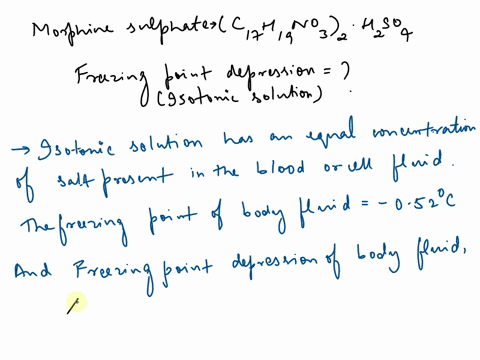 Morphine sulphate→(C₁₇H₁₉NO₃)₂·H₂SO₄
Freezing point depression = ?
(Isotonic solution)
→ Isotonic solution has an equal concentration
of salt present in the blood or cell fluid.
The freezing point of body fluid = -0.52°C
And Freezing point depression of body fluid,